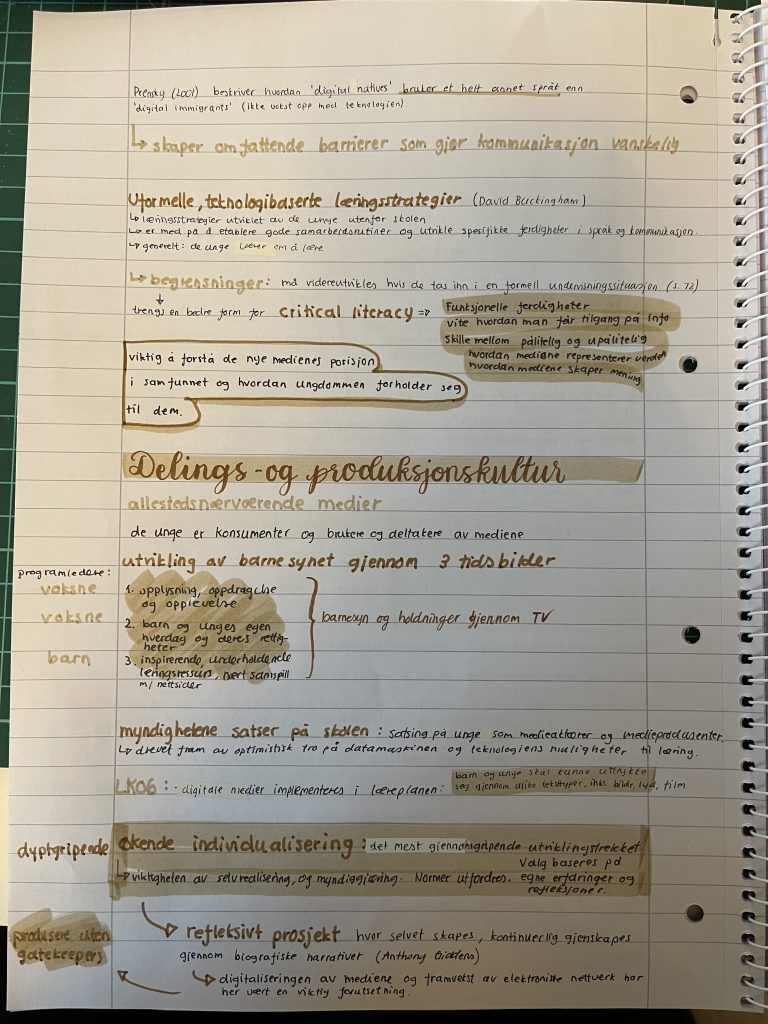 Prensky (2001) beskriver hvordan 'digital natives' bruker et helt annet språk enn
'digital immigrants' (ikke vokst opp med teknologien).
↳ skaper omfattende barrierer som gjør kommunikasjon vanskelig
Uformelle, teknologibaserte læringsstrategier (David Buckingham)
↳ læringsstrategier utviklet av de unge utenfor skolen
↳ er med på å etablere gode samarbeidsrutiner og utvikle spesifikke ferdigheter i språk og kommunikasjon.
↳ generelt: de unge lærer om å lære
↳ begrensninger: må videreutvikles hvis de tas inn i en formell undervisningssituasjon (s. 72)
trengs en bedre form for critical literacy ⇒
Funksjonelle ferdigheter
vite hvordan man får tilgang på info
Skille mellom pålitelig og upålitelig
hvordan mediene representerer verden
hvordan mediene skaper mening
viktig å forstå de nye medienes posisjon
i samfunnet og hvordan ungdommen forholder seg
til dem.
Delings- og produksjonskultur
allestedsnærværende medier
de unge er konsumenter og brukere og deltakere av mediene
utvikling av barnesynet gjennom 3 tidsbilder
programledere:
voksne 1. opplysning, oppdragelse
og opplevelse
voksne 2. barn og unges egen
hverdag og deres rettig-
heter
barn 3. inspirerende, underholdende
læringsressurs, nært samspill
m/ nettsider
barnesyn og holdninger gjennom TV
myndighetene satser på skolen: satsing på unge som medieaktører og medieprodusenter.
↳ drevet fram av optimistisk tro på datamaskinen og teknologiens muligheter til læring.
LK06: - digitale medier implementeres i læreplanen:
barn og unge skal kunne uttrykke
seg gjennom ulike teksttyper, inkl. bilde, lyd, film
dyptgripende økende individualisering: det mest gjennomgripende utviklingstrekket
↳ viktigheten av selvrealisering, og myndiggjøring. Normer utfordres.
Valg baseres på
egne erfaringer og
refleksjoner.
produsere uten
gatekeepers
↳ refleksivt prosjekt hvor selvet skapes, kontinuerlig gjenskapes
gjennom biografiske narrativer (Anthony Giddens)
↳ digitaliseringen av mediene og framvekst av elektroniske nettverk har
her vært en viktig forutsetning.